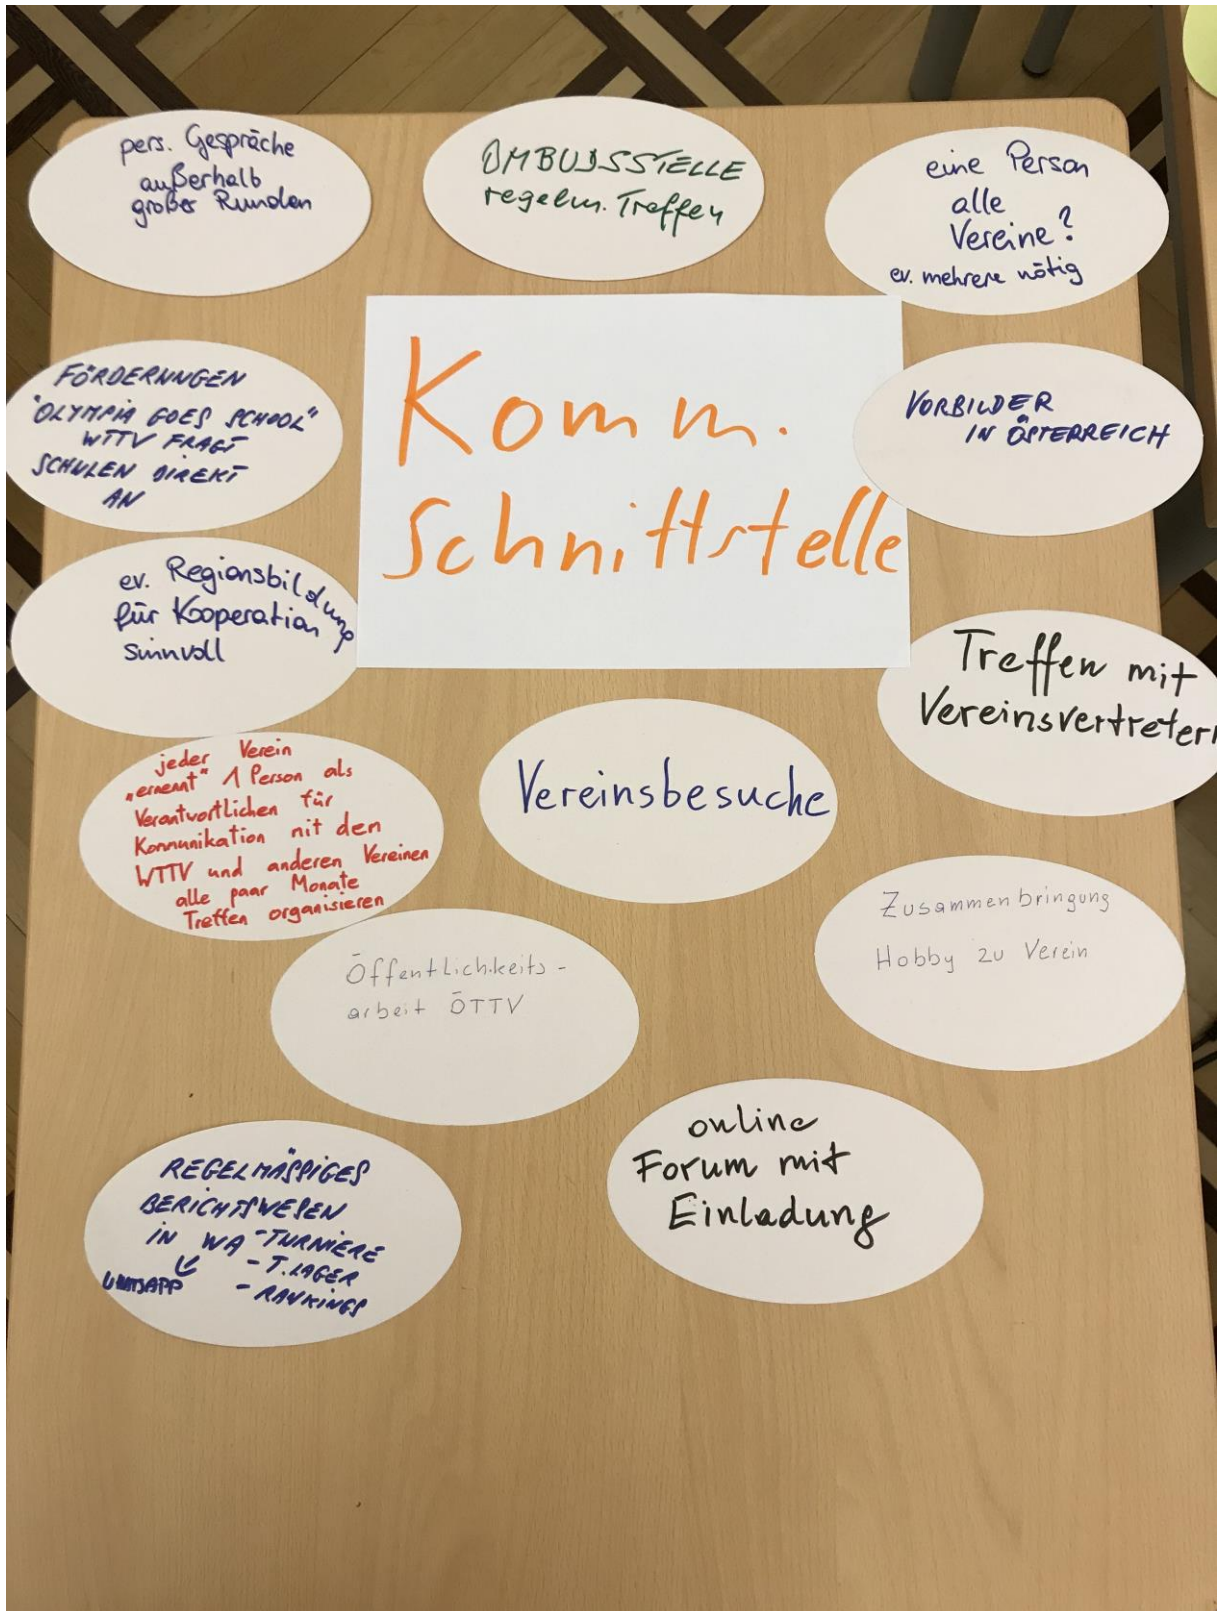 pers. Gespräche
außerhalb
großer Runden
OMBUDSSTELLE
regelm. Treffen
eine Person
alle
Vereine?
ev. mehrere nötig
Komm.
Schnittstelle
FÖRDERUNGEN
"OLYMPIA GOES SCHOOL"
WTTV FRAGT
SCHULEN DIREKT
AN
VORBILDER
IN ÖSTERREICH
ev. Regionsbildung
für Kooperation
sinnvoll
Treffen mit
Vereinsvertretern
jeder Verein
„ernennt" 1 Person als
Verantwortlichen für
Kommunikation mit den
WTTV und anderen Vereinen
alle paar Monate
Treffen organisieren
Vereinsbesuche
Zusammenbringung
Hobby zu Verein
Öffentlichkeits-
arbeit ÖTTV
online
Forum mit
Einladung
REGELMÄSSIGES
BERICHTSWESEN
IN WA - TURNIERE
- T.LAGER
- RANKINGS